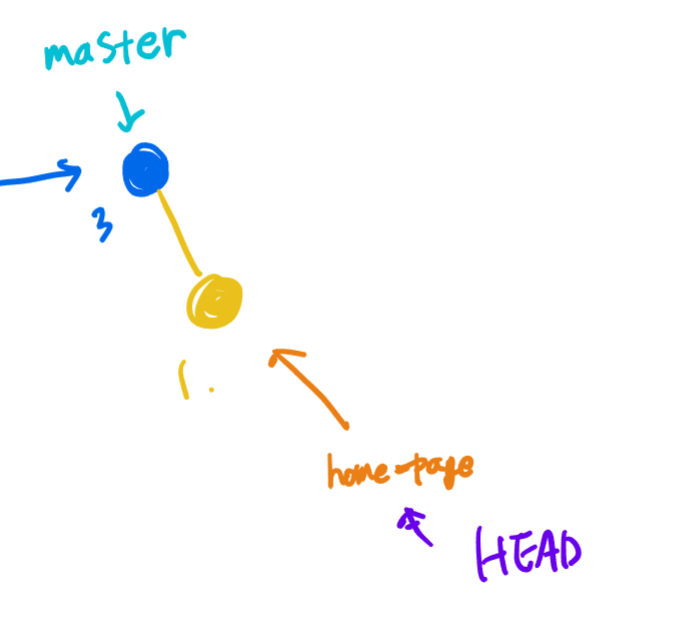 master
3
1.
home-page
HEAD